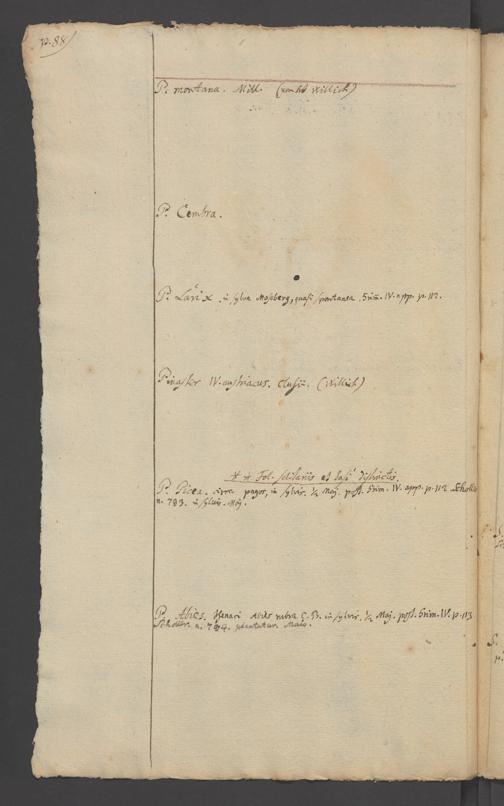 p. 88
P. montana. Mill. (Willich)
P. Cembra.
P. Larix. in sylva Mosberg, quasi spontanea. Grim. IV. app. p. 112.
Pinaster IV. austriacus. Clusii. (Willich)
* * Fol. solitariis et basi distinctis.
P. Picea. circa pagos, in sylvis. 1/2 Maj. post. Grim. IV. app. p. 112 Scholler
n. 783. in sylvis. Maj.
P. Abies. Abies rubra C. B. in sylvis. 1/2 Maj. post. Grim. IV. p. 113
Scholler. n. 784. plantatur. Majo.